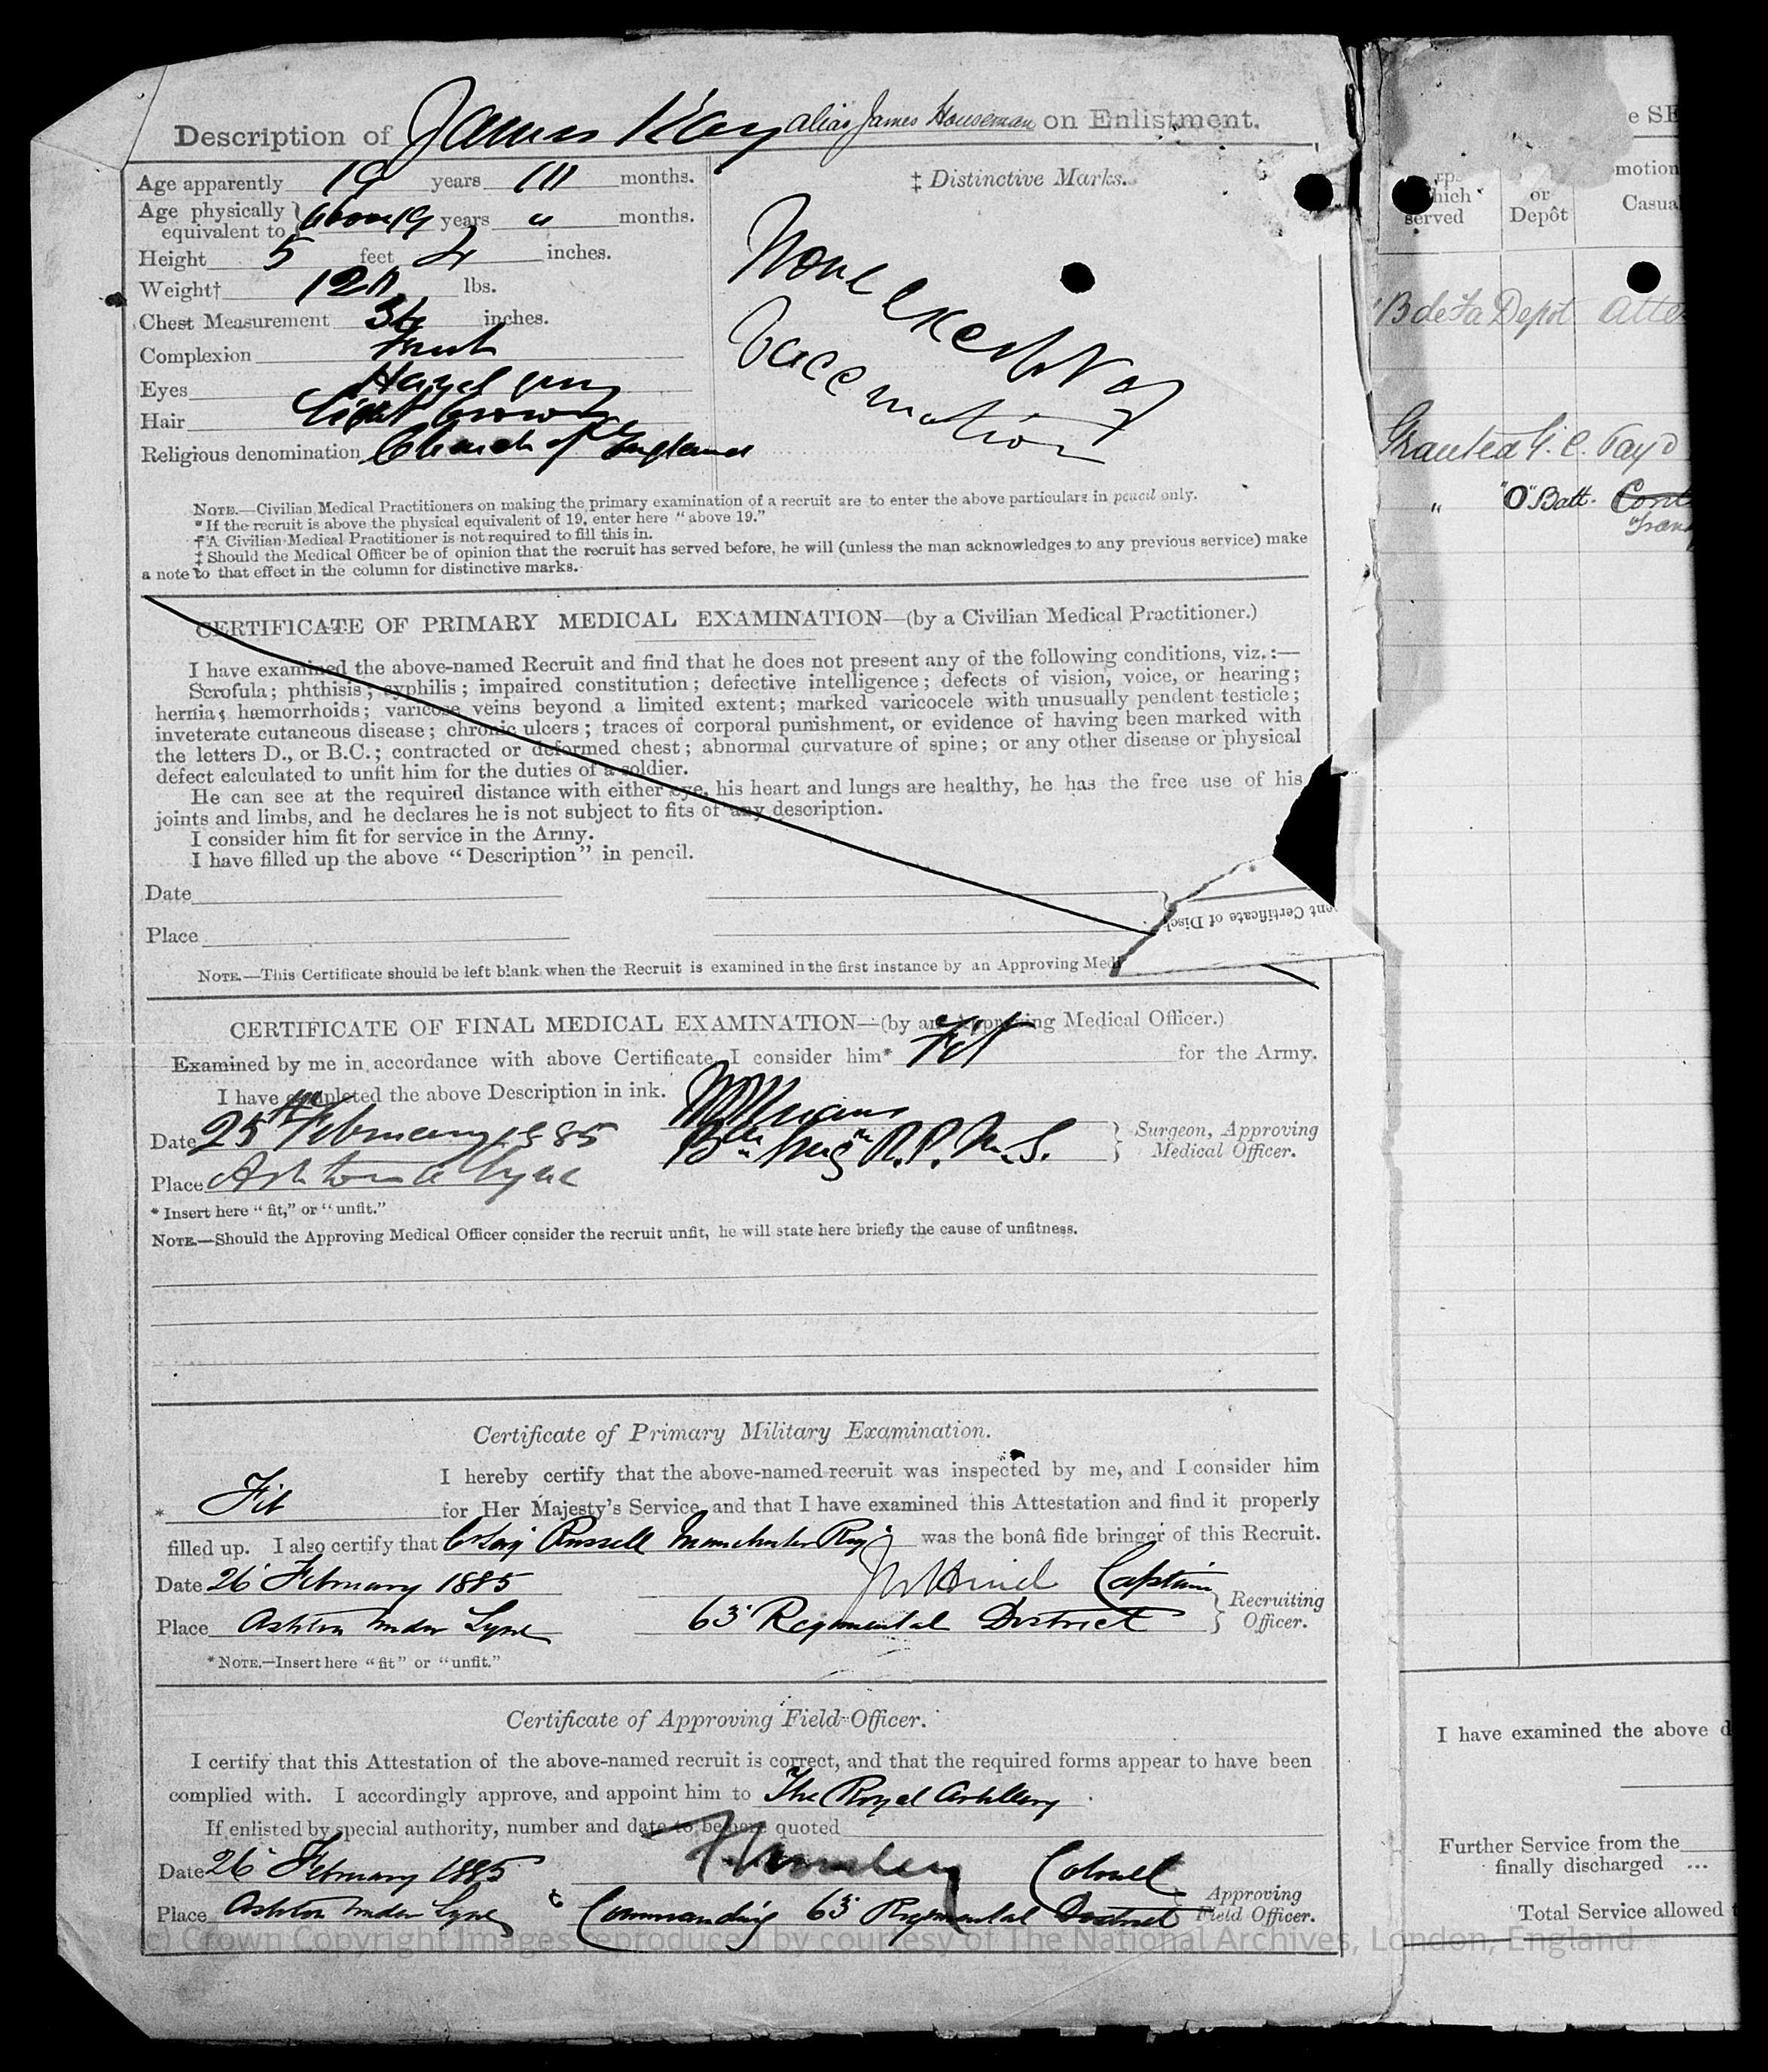 Description of James Kay alias James Houseman on Enlistment.
Age apparently 19 years months.
‡ Distinctive Marks.
Age physically equivalent to above 19 years months.
Height 5 feet 4 inches.
Weight† lbs.
Chest Measurement 34 inches.
Complexion Fresh
Eyes Hazel grey
Hair Light brown
Religious denomination Church of England
None except
Vaccination
NOTE.—Civilian Medical Practitioners on making the primary examination of a recruit are to enter the above particulars in pencil only.
*If the recruit is above the physical equivalent of 19, enter here "above 19."
†A Civilian Medical Practitioner is not required to fill this in.
‡ Should the Medical Officer be of opinion that the recruit has served before, he will (unless the man acknowledges to any previous service) make
a note to that effect in the column for distinctive marks.
CERTIFICATE OF PRIMARY MEDICAL EXAMINATION—(by a Civilian Medical Practitioner.)
I have examined the above-named Recruit and find that he does not present any of the following conditions, viz.:—
Scrofula; phthisis; syphilis; impaired constitution; defective intelligence; defects of vision, voice, or hearing;
hernia; hæmorrhoids; varicose veins beyond a limited extent; marked varicocele with unusually pendent testicle;
inveterate cutaneous disease; chronic ulcers; traces of corporal punishment, or evidence of having been marked with
the letters D., or B.C.; contracted or deformed chest; abnormal curvature of spine; or any other disease or physical
defect calculated to unfit him for the duties of a soldier.
He can see at the required distance with either eye, his heart and lungs are healthy, he has the free use of his
joints and limbs, and he declares he is not subject to fits of any description.
I consider him fit for service in the Army.
I have filled up the above "Description" in pencil.
Date
Place
ent Certificate of Disch
NOTE.—This Certificate should be left blank when the Recruit is examined in the first instance by an Approving Medi
CERTIFICATE OF FINAL MEDICAL EXAMINATION—(by an Approving Medical Officer.)
Examined by me in accordance with above Certificate, I consider him* Fit for the Army.
I have completed the above Description in ink.
Date 25th February 1885
R.P.M.S. Surgeon, Approving Medical Officer.
Place Ashton u Lyne
* Insert here "fit," or "unfit."
NOTE.—Should the Approving Medical Officer consider the recruit unfit, he will state here briefly the cause of unfitness.
Certificate of Primary Military Examination.
I hereby certify that the above-named recruit was inspected by me, and I consider him
* Fit for Her Majesty's Service, and that I have examined this Attestation and find it properly
filled up. I also certify that C. Sergt Russell Manchester Regt was the bonâ fide bringer of this Recruit.
Date 26 February 1885 Captain
Recruiting Officer.
Place Ashton under Lyne 63 Regimental District
*NOTE.—Insert here "fit" or "unfit."
Certificate of Approving Field-Officer.
I certify that this Attestation of the above-named recruit is correct, and that the required forms appear to have been
complied with. I accordingly approve, and appoint him to The Royal Artillery.
If enlisted by special authority, number and date to be here quoted
Date 26 February 1885 Colonel
Place Ashton under Lyne Commanding 63 Regimental District
Approving Field Officer.
(c) Crown Copyright Images reproduced by courtesy of The National Archives, London, England
e SE
which served
or Depôt
motion
Casua
Depot Atte
Granted G.C. Pay
" "O" Batt.
I have examined the above d
Further Service from the
finally discharged ...
Total Service allowed t